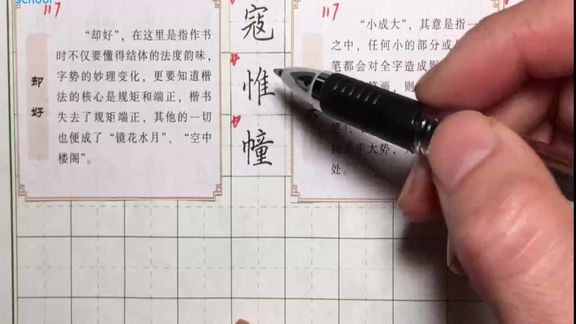 school
117
却好
“却好”，在这里是指作书
时不仅要懂得结体的法度韵味，
字势的妙理变化，更要知道楷
法的核心是规矩和端正，楷书
失去了规矩端正，其他的一切
也便成了“镜花水月”、“空中
楼阁”。
寇
惟
幢
117
“小成大”，其意是指一
之中，任何小的部分或
笔都会对全字造成影
笔画，则
大势，
处。